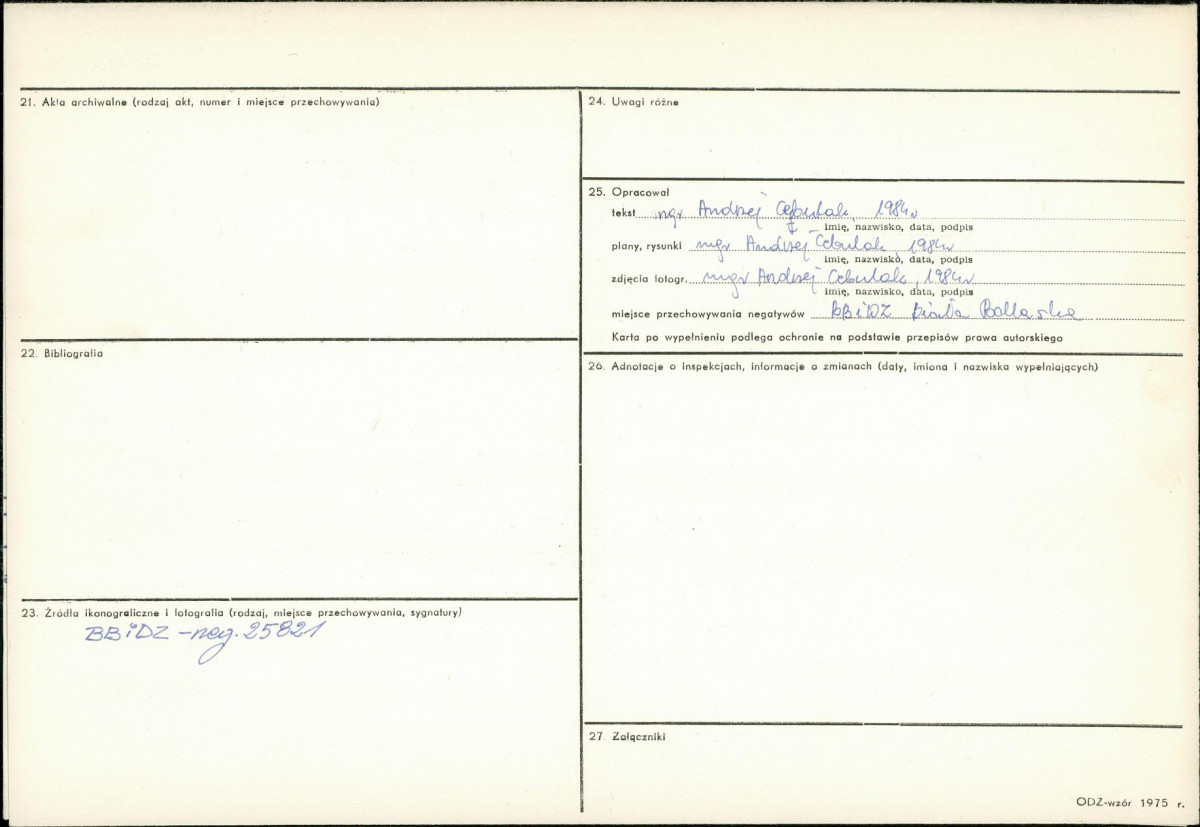 21. Akta archiwalne (rodzaj akt, numer i miejsce przechowywania)
22. Bibliografia
23. Źródła ikonograficzne i fotografia (rodzaj, miejsce przechowywania, sygnatury)
BBiDZ - neg. 25821
24. Uwagi różne
25. Opracował
tekst mgr Andrzej 1984r
imię, nazwisko, data, podpis
plany, rysunki mgr Andrzej Cebulak, 1984r
imię, nazwisko, data, podpis
zdjęcia fotogr. mgr Andrzej Cebulak, 1984r
imię, nazwisko, data, podpis
miejsce przechowywania negatywów BBiDZ Biała Podlaska
Karta po wypełnieniu podlega ochronie na podstawie przepisów prawa autorskiego
26. Adnotacje o inspekcjach, informacje o zmianach (daty, imiona i nazwiska wypełniających)
27. Załączniki
ODZ-wzór 1975 r.